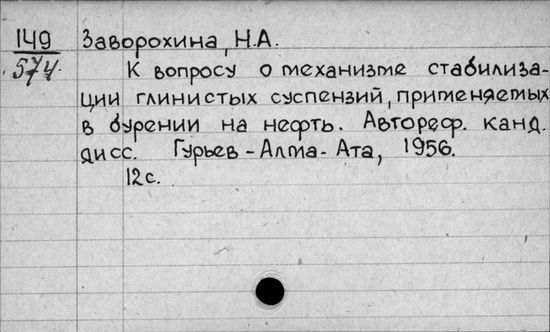 149 Заворохина, Н.А.
574.
К вопросу о механизме стабилиза-
ции глинистых суспензий, применяемых
в бурении на нефть. Автореф. канд.
дисс. Гурьев-Алма-Ата, 1956.
12с.